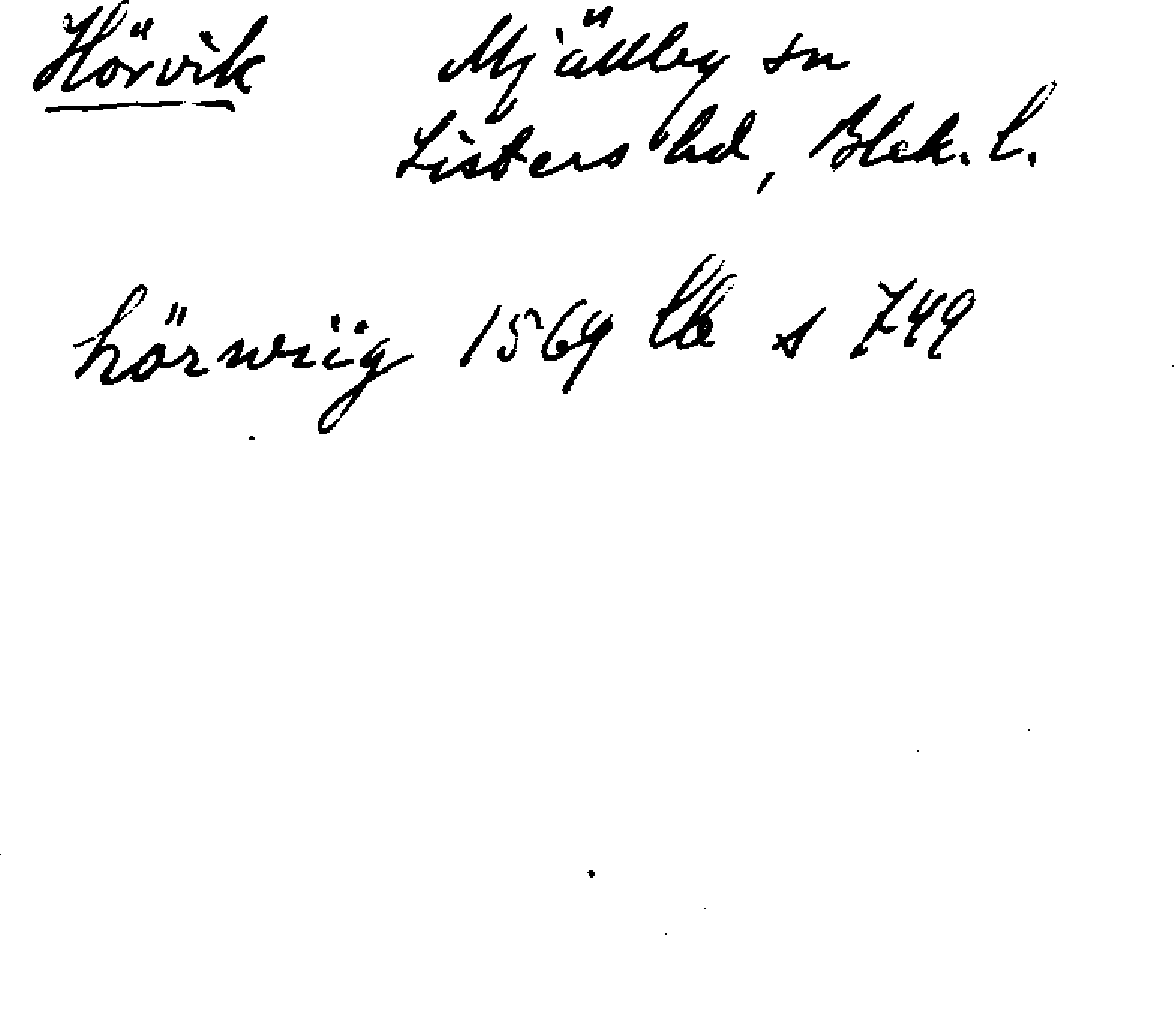 Hörvik Mjällby sn
Listers hd, Blek. l.
hörwiig 1569 LB s 749